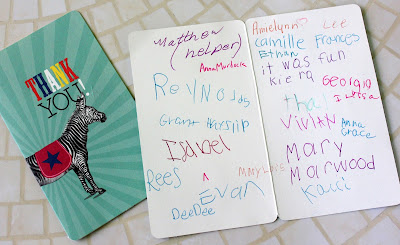 THANK
YOU!
Matthew
(helper)
Anna Murdock
Reynolds
Grant
Isabel
Rees
Evan
DeeDee
Amielynn
Lee
Camille Frances
Ethan
it was fun
Kiera
Georgia
thal
Vivian
Anna
Grace
Mary
Marwood
Kacci